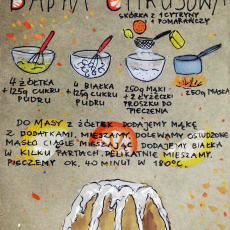 BABKA CYTRUSOWA
SKÓRKA Z 1 CYTRYNY
+ 1 POMARAŃCZY
4 ŻÓŁTKA
+125g CUKRU
PUDRU
4 BIAŁKA
+125g CUKRU
PUDRU
250g MĄKI
+ 2 ŁYŻECZKI
PROSZKU DO
PIECZENIA
250g MASŁA
DO MASY Z ŻÓŁTEK DODAJEMY MĄKĘ
Z DODATKAMI, MIESZAMY. DOLEWAMY OSTUDZONE
MASŁO CIĄGLE MIESZAJĄC. DODAJEMY BIAŁKA
W KILKU PARTIACH. DELIKATNIE MIESZAMY.
PIECZEMY OK. 40 MINUT W 180°C.